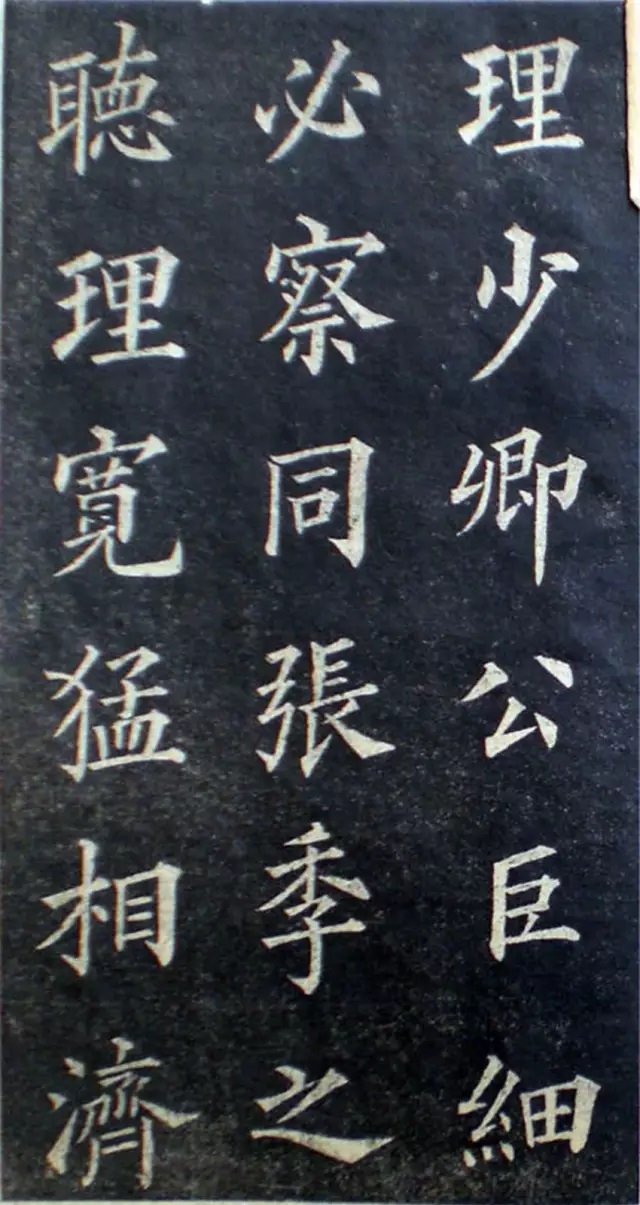 理少卿公巨細
必察同張季之
聽理寬猛相濟